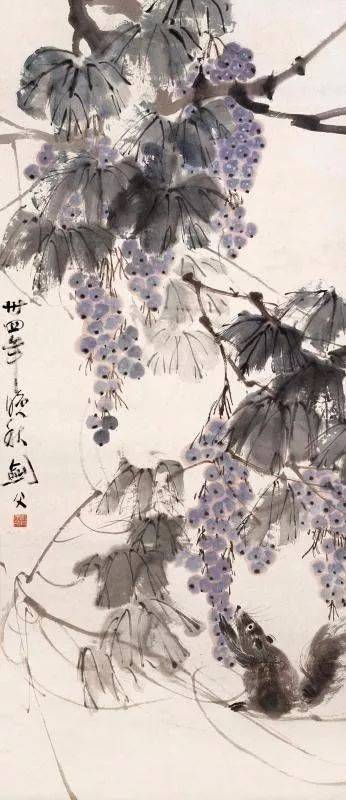 卅四年晚秋劍父